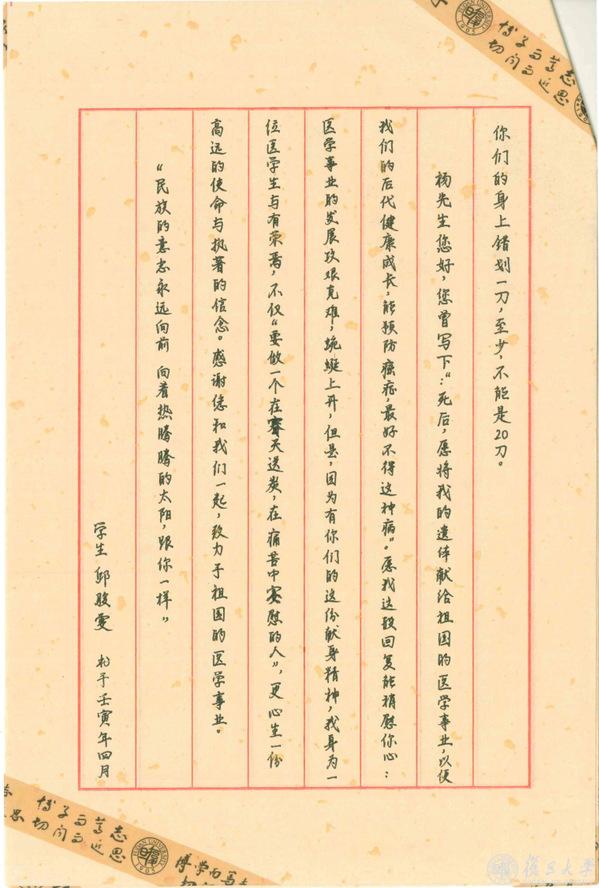 博学而笃志
切问而近思
你们的身上错划一刀，至少，不能是20刀。
杨先生您好，您曾写下：“死后，愿将我的遗体献给祖国的医学事业，以便
我们的后代健康成长，能预防癌症，最好不得这种病”。愿我这段回复能稍慰你心：
医学事业的发展攻艰克难，蜿蜒上升，但是，因为有你们的这份献身精神，我身为一
位医学生与有荣焉，不仅“要做一个在寒天送炭，在痛苦中安慰的人”，更心生一份
高远的使命与执著的信念。感谢您和我们一起，致力于祖国的医学事业。
“民族的意志永远向前 向着热腾腾的太阳，跟你一样”
学生 邱骏雯 于壬寅年四月
博学而笃志
切问而近思
博学而笃志
復旦大學